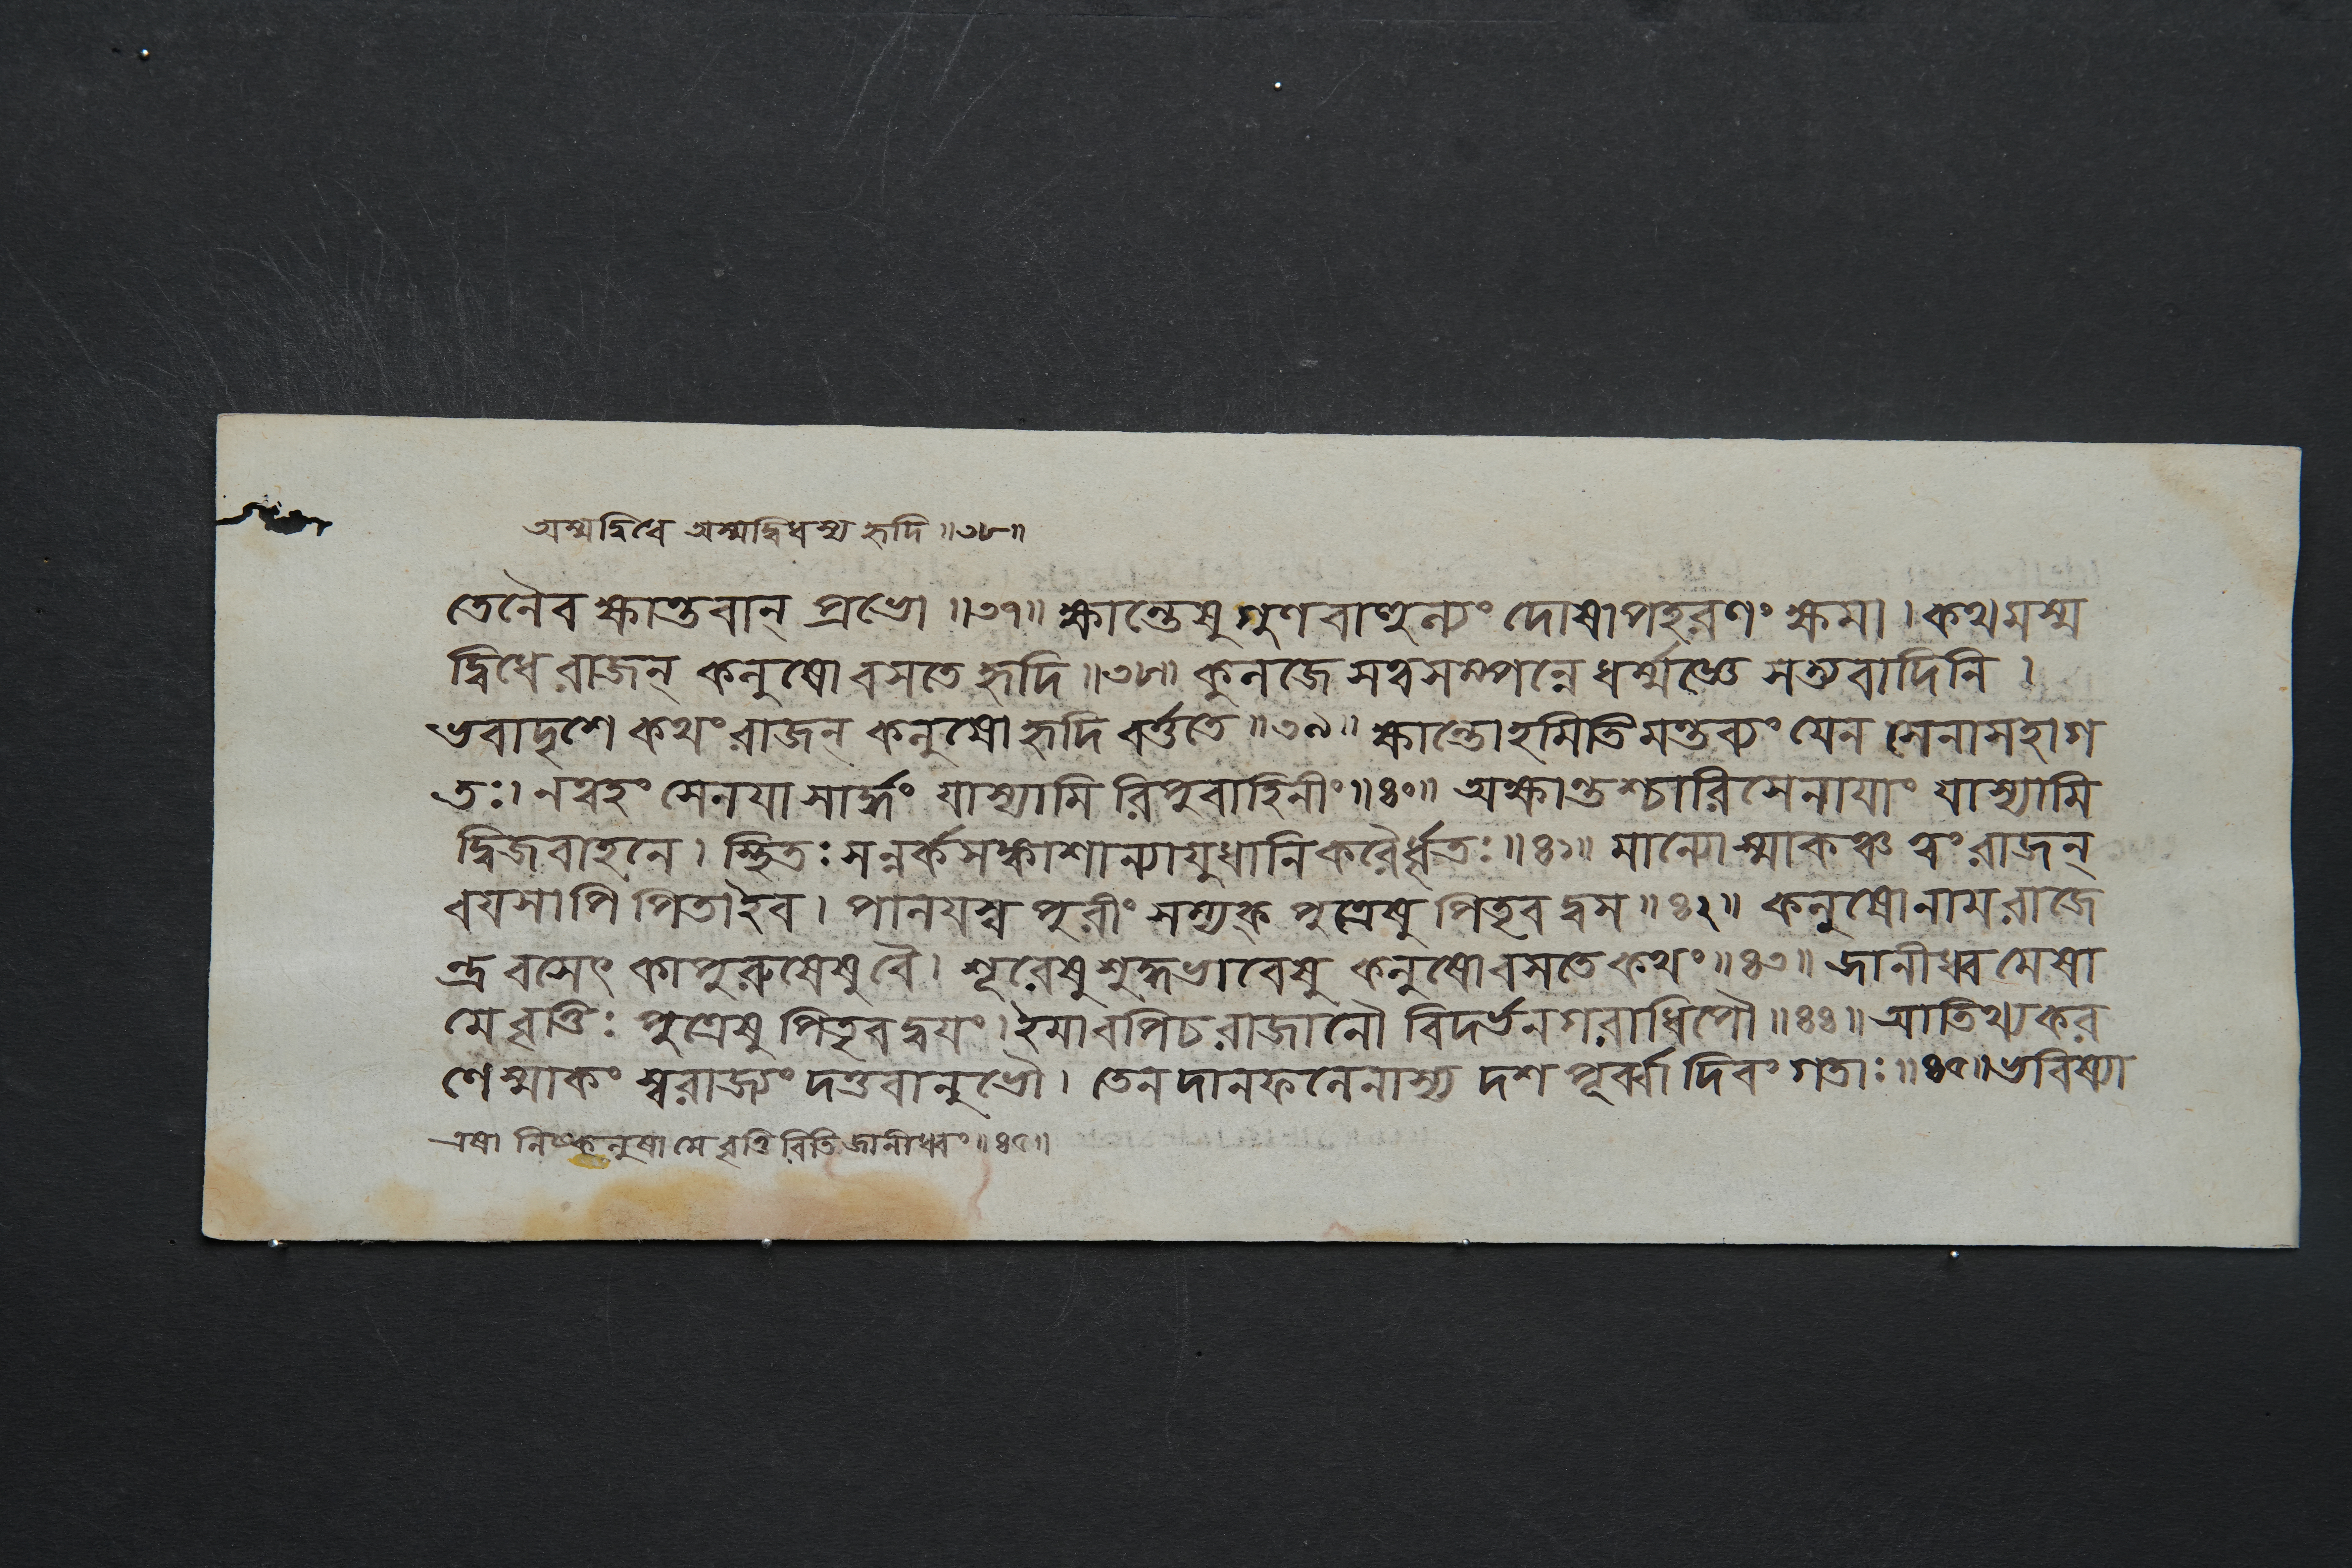 অস্মদ্বিধে অস্মদ্বিধস্য হৃদি ॥৩৮॥
তেনৈব ক্ষান্তবান্ প্রভো ॥৩৭॥ ক্ষান্তেষু গুণবাণ্হুল্যং দোষাপহরণং ক্ষমা । কথমস্ম
দ্বিধে রাজন্ কলুষো বসতে হৃদি ॥৩৮॥ কুলজে সত্বসম্পন্নে ধর্ম্মজ্ঞে সত্যবাদিনি ।
ভবাদৃশে কথং রাজন্ কলুষো হৃদি বর্ত্ততে ॥৩৯॥ ক্ষান্তোহমিতি মন্তব্যং যেন সেনাসহাগ
তঃ। নত্বহং সেনযা সার্দ্ধং যাস্যামি রিপুবাহিনীং ॥৪০॥ অক্ষান্তশ্চারিসেনাযাং যাস্যামি
দ্বিজবাহনে । স্থিতঃ সন্নর্কসঙ্কাশান্যাযুধানি করৈর্ধৃতঃ ॥৪১॥ মান্যোস্মাকঞ্চ ত্বং রাজন্
বযসাপি পিতা ইব । পালযস্ব পুরীং সম্যক্ পুত্রেষু পিতৃবদ্বস ॥৪২॥ কলুষোনাম রাজে
ন্দ্র বসেৎ কাপুরুষেষু বৈ । শূরেষু শুদ্ধভাবেষু কলুষো বসতে কথং ॥৪৩॥ জানীধ্বমেষা
মে বৃত্তিঃ পুত্রেষু পিতৃবদ্বযং । ইমাবপি চ রাজানৌ বিদর্ভনগরাধিপৌ ॥৪৪॥ আতিথ্যকর
ণেস্মাকং স্বরাজ্যং দত্তবানুভৌ । তেন দানফলেনাস্য দশ পূর্ব্বা দিবং গতাঃ ॥৪৫॥ ভবিষ্যা
এষা নিষ্কলুষা মে বৃত্তিরিতি জানীধ্বং ॥৪৫॥